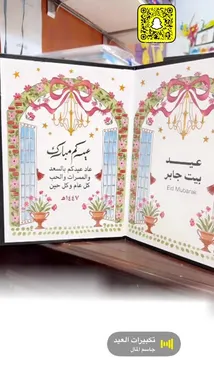 عيدكم مبارك
عاد عيدكم بالسعد
والمسرات والحب
كل عام وكل حين
١٤٤٧هـ
عيد
بيت جابر
Eid Mubarak
تكبيرات العيد
جاسم المال